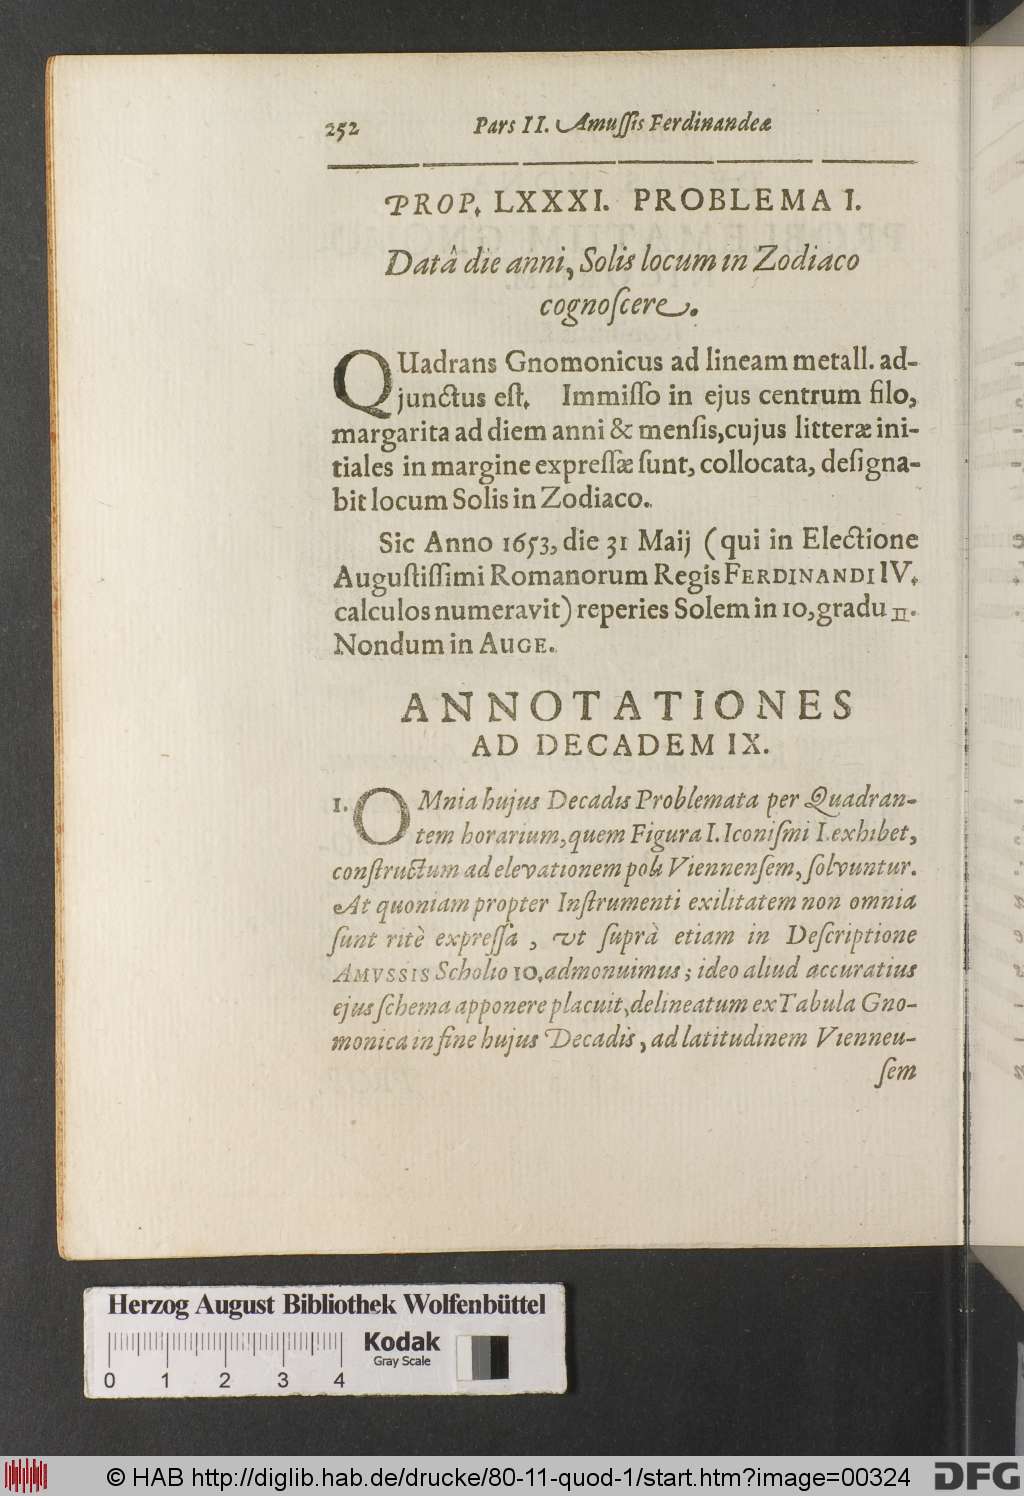 252 Pars II. Amussis Ferdinandeæ
PROP. LXXXI. PROBLEMA I.
Datâ die anni, Solis locum in Zodiaco
cognoscere.
QUadrans Gnomonicus ad lineam metall. ad-
junctus est. Immisso in ejus centrum filo,
margarita ad diem anni & mensis, cujus litteræ ini-
tiales in margine expressæ sunt, collocata, designa-
bit locum Solis in Zodiaco.
Sic Anno 1653, die 31 Maij (qui in Electione
Augustissimi Romanorum Regis FERDINANDI IV.
calculos numeravit) reperies Solem in 10, gradu ♊.
Nondum in AUGE.
ANNOTATIONES
AD DECADEM IX.
1. OMnia hujus Decadis Problemata per Quadran-
tem horarium, quem Figura I. Iconismi I. exhibet,
constructum ad elevationem poli Viennensem, solvuntur.
At quoniam propter Instrumenti exilitatem non omnia
sunt ritè expressa, vt suprà etiam in Descriptione
AMVSSIS Scholio 10, admonuimus; ideo aliud accuratius
ejus schema apponere placuit, delineatum ex Tabula Gno-
monica in fine hujus Decadis, ad latitudinem Vienneu-
sem
Herzog August Bibliothek Wolfenbüttel
Kodak
Gray Scale
0 1 2 3 4
© HAB http://diglib.hab.de/drucke/80-11-quod-1/start.htm?image=00324
DFG